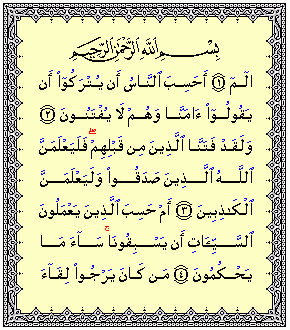 بِسْمِ ٱللَّهِ ٱلرَّحْمَٰنِ ٱلرَّحِيمِ
الٓمٓ ۝١ أَحَسِبَ ٱلنَّاسُ أَن يُتْرَكُوٓا۟ أَن
يَقُولُوٓا۟ ءَامَنَّا وَهُمْ لَا يُفْتَنُونَ ۝٢
وَلَقَدْ فَتَنَّا ٱلَّذِينَ مِن قَبْلِهِمْ ۖ فَلَيَعْلَمَنَّ
ٱللَّهُ ٱلَّذِينَ صَدَقُوا۟ وَلَيَعْلَمَنَّ
ٱلْكَٰذِبِينَ ۝٣ أَمْ حَسِبَ ٱلَّذِينَ يَعْمَلُونَ
ٱلسَّيِّـَٔاتِ أَن يَسْبِقُونَا ۚ سَآءَ مَا
يَحْكُمُونَ ۝٤ مَن كَانَ يَرْجُوا۟ لِقَآءَ